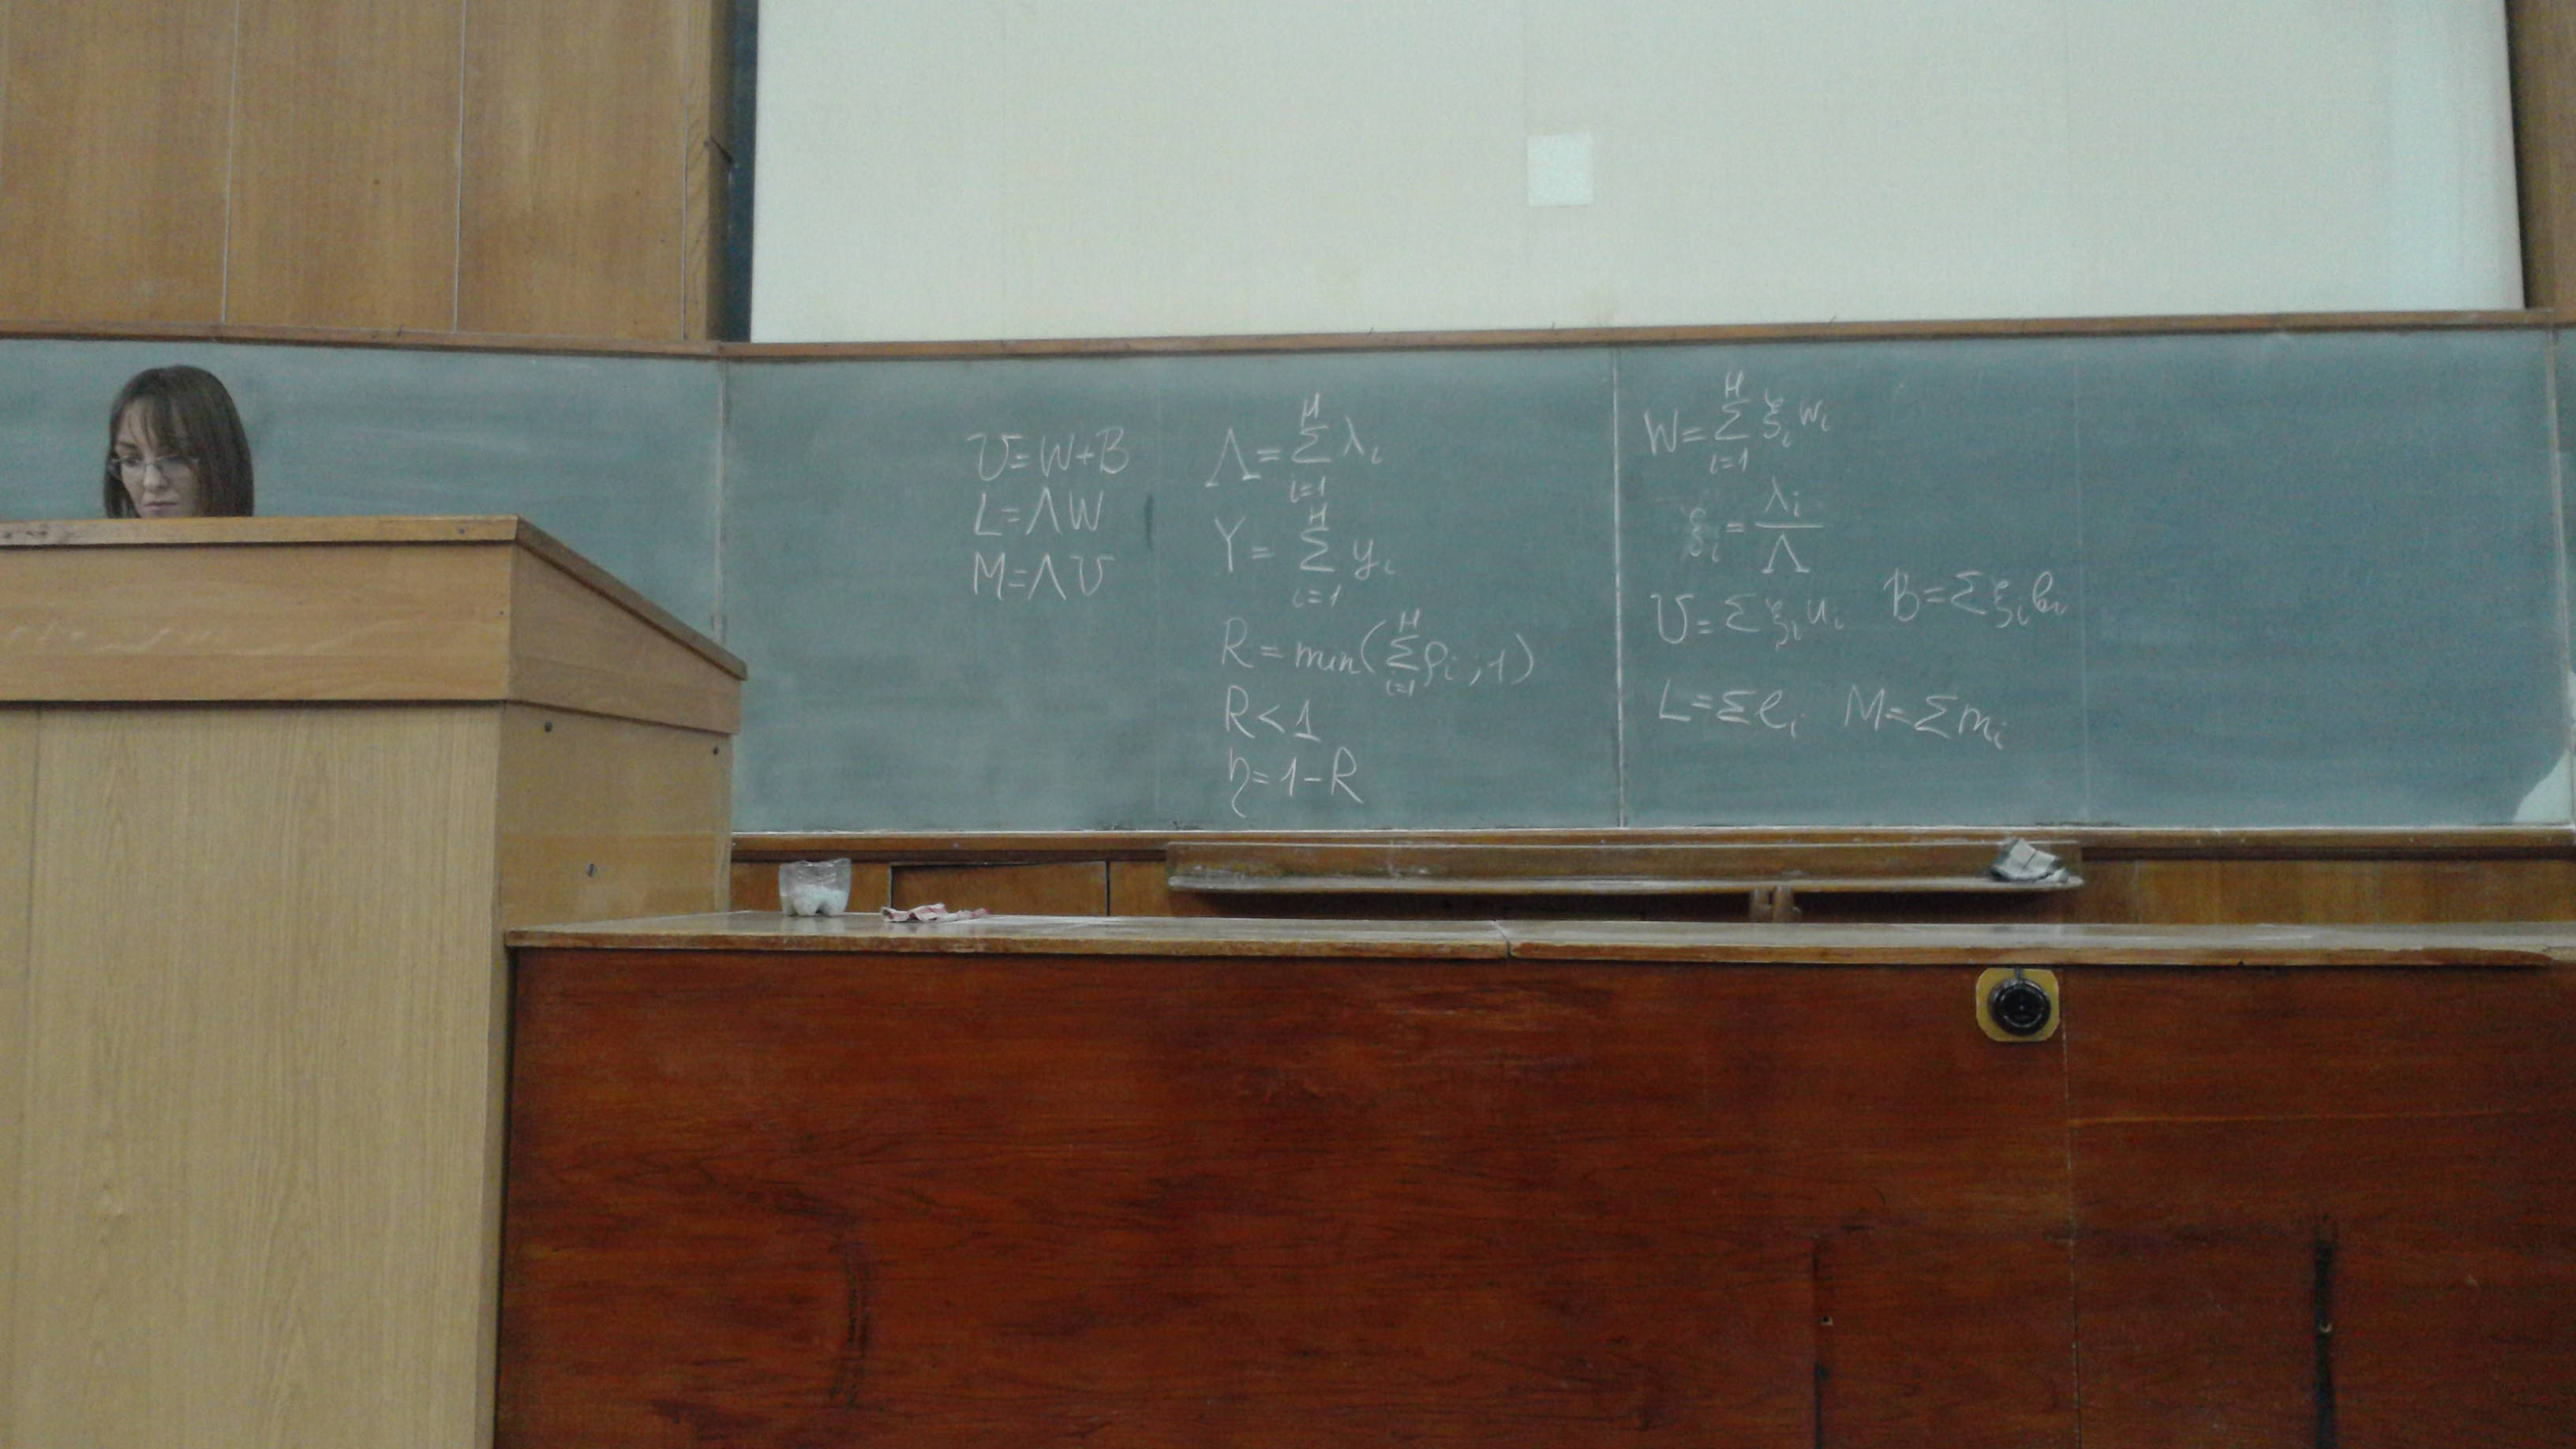 U=W+B
L=ΛW
M=ΛU
Λ=∑_{i=1}^{H} λ_i
Y=∑_{i=1}^{H} y_i
R=min(∑_{i=1}^{H} ρ_i ; 1)
R<1
η=1-R
W=∑_{i=1}^{H} ξ_i w_i
ξ_i=λ_i/Λ
U=∑ξ_i u_i B=∑ξ_i b_i
L=∑l_i M=∑m_i